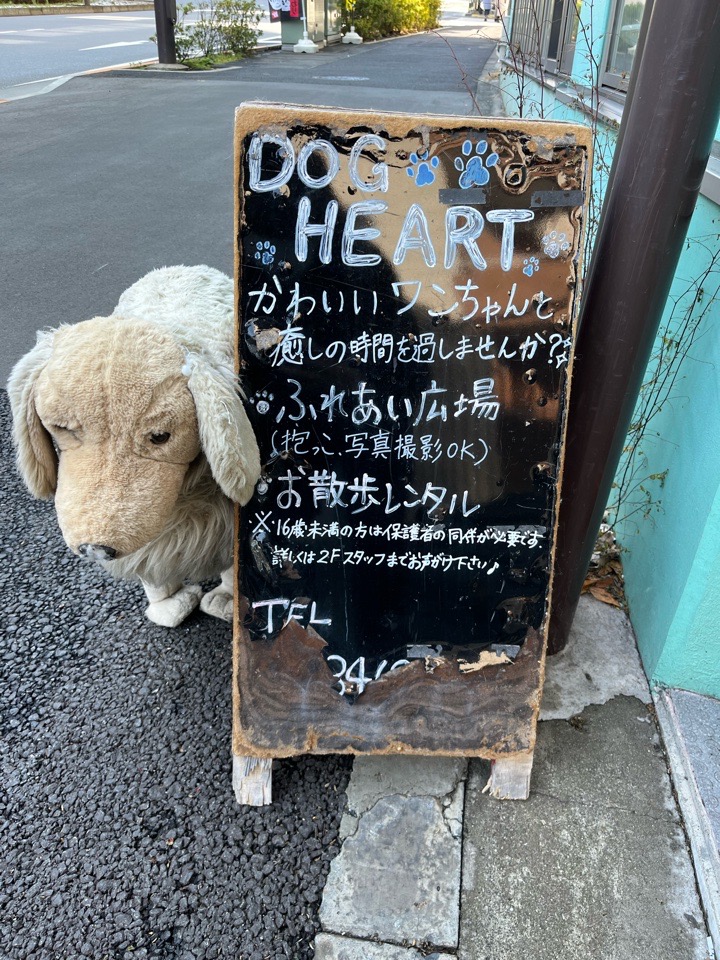 DOG
HEART
かわいいワンちゃんと
癒しの時間を過しませんか?
ふれあい広場
(抱っこ、写真撮影OK)
お散歩レンタル
※16歳未満の方は保護者の同伴が必要です.
詳しくは2Fスタッフまでお声がけ下さい♪
TEL